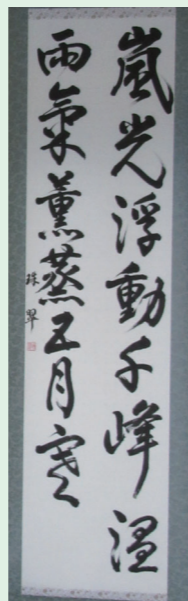 嵐光浮動千峰湿
雨氣薰蒸五月寒
珠翠